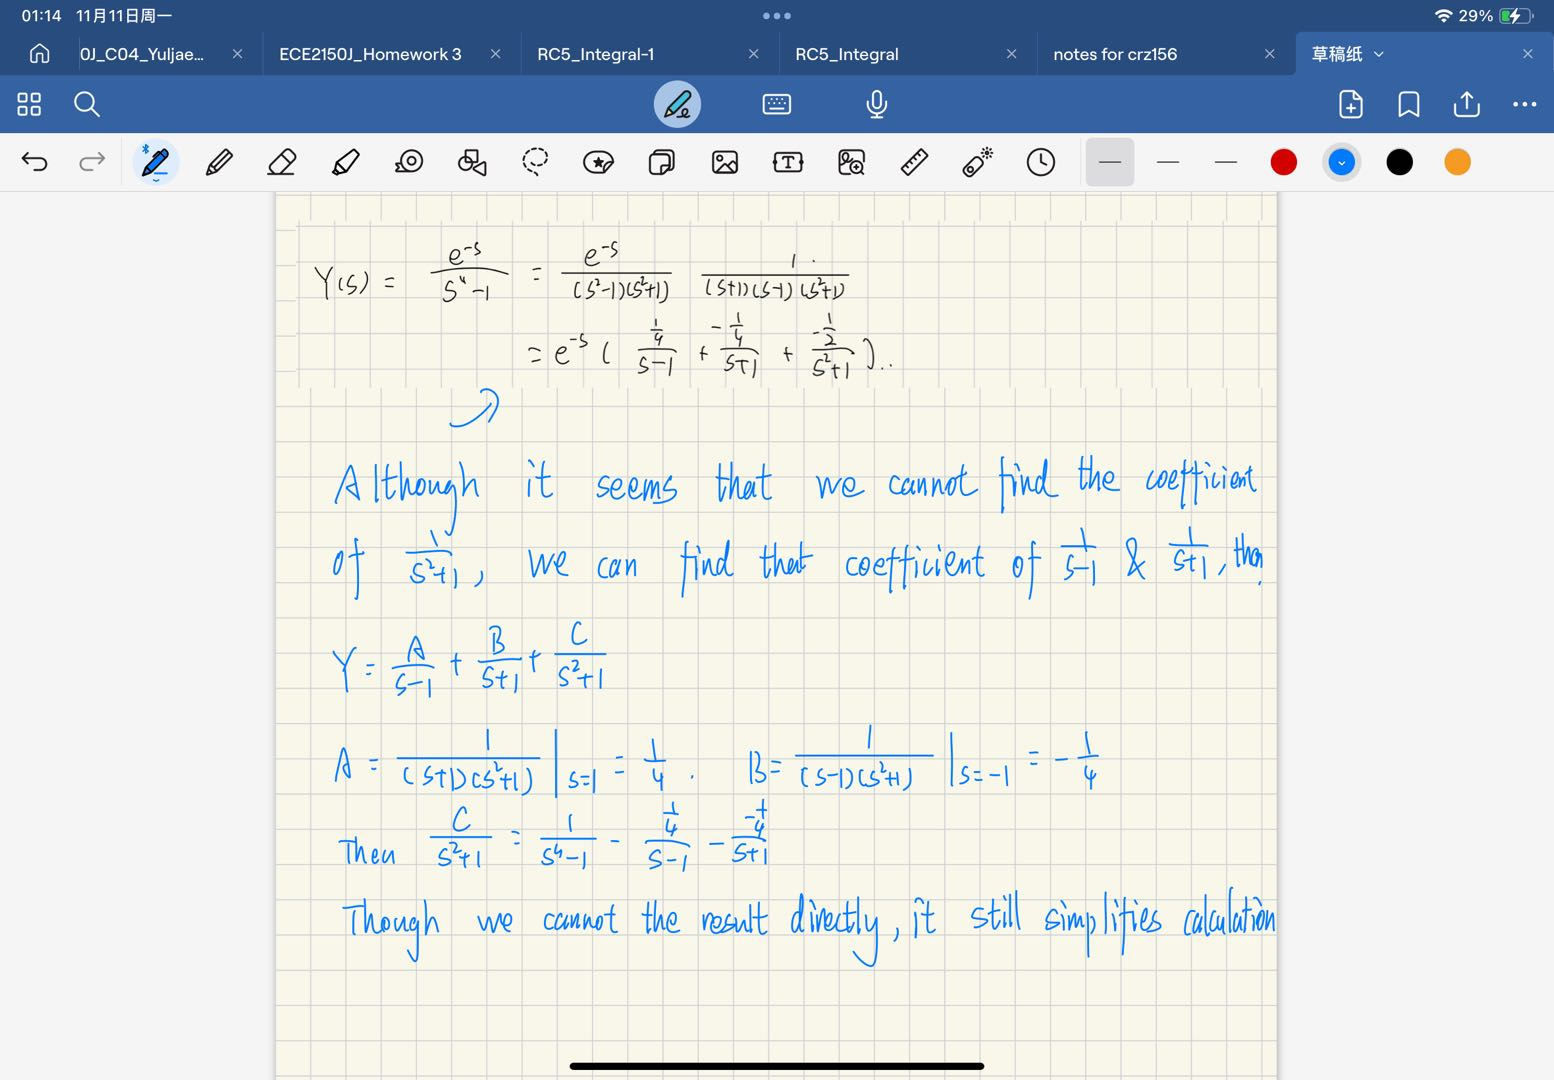 01:14 11月11日周一 29%
0J_C04_Yuljae... ECE2150J_Homework 3 RC5_Integral-1 RC5_Integral notes for crz156 草稿纸
Y(s) = e^{-s}/(s^4-1) = e^{-s}/((s^2-1)(s^2+1)) 1/((s+1)(s-1)(s^2+1))
= e^{-s} ( (1/4)/(s-1) + (-1/4)/(s+1) + (-1/2)/(s^2+1) )..
Although it seems that we cannot find the coefficient
of 1/(s^2+1), we can find that coefficient of 1/(s-1) & 1/(s+1), then
Y = A/(s-1) + B/(s+1) + C/(s^2+1)
A = 1/((s+1)(s^2+1)) |_{s=1} = 1/4 . B = 1/((s-1)(s^2+1)) |_{s=-1} = -1/4
Then C/(s^2+1) = 1/(s^4-1) - (1/4)/(s-1) - (-1/4)/(s+1)
Though we cannot the result directly, it still simplifies calculation